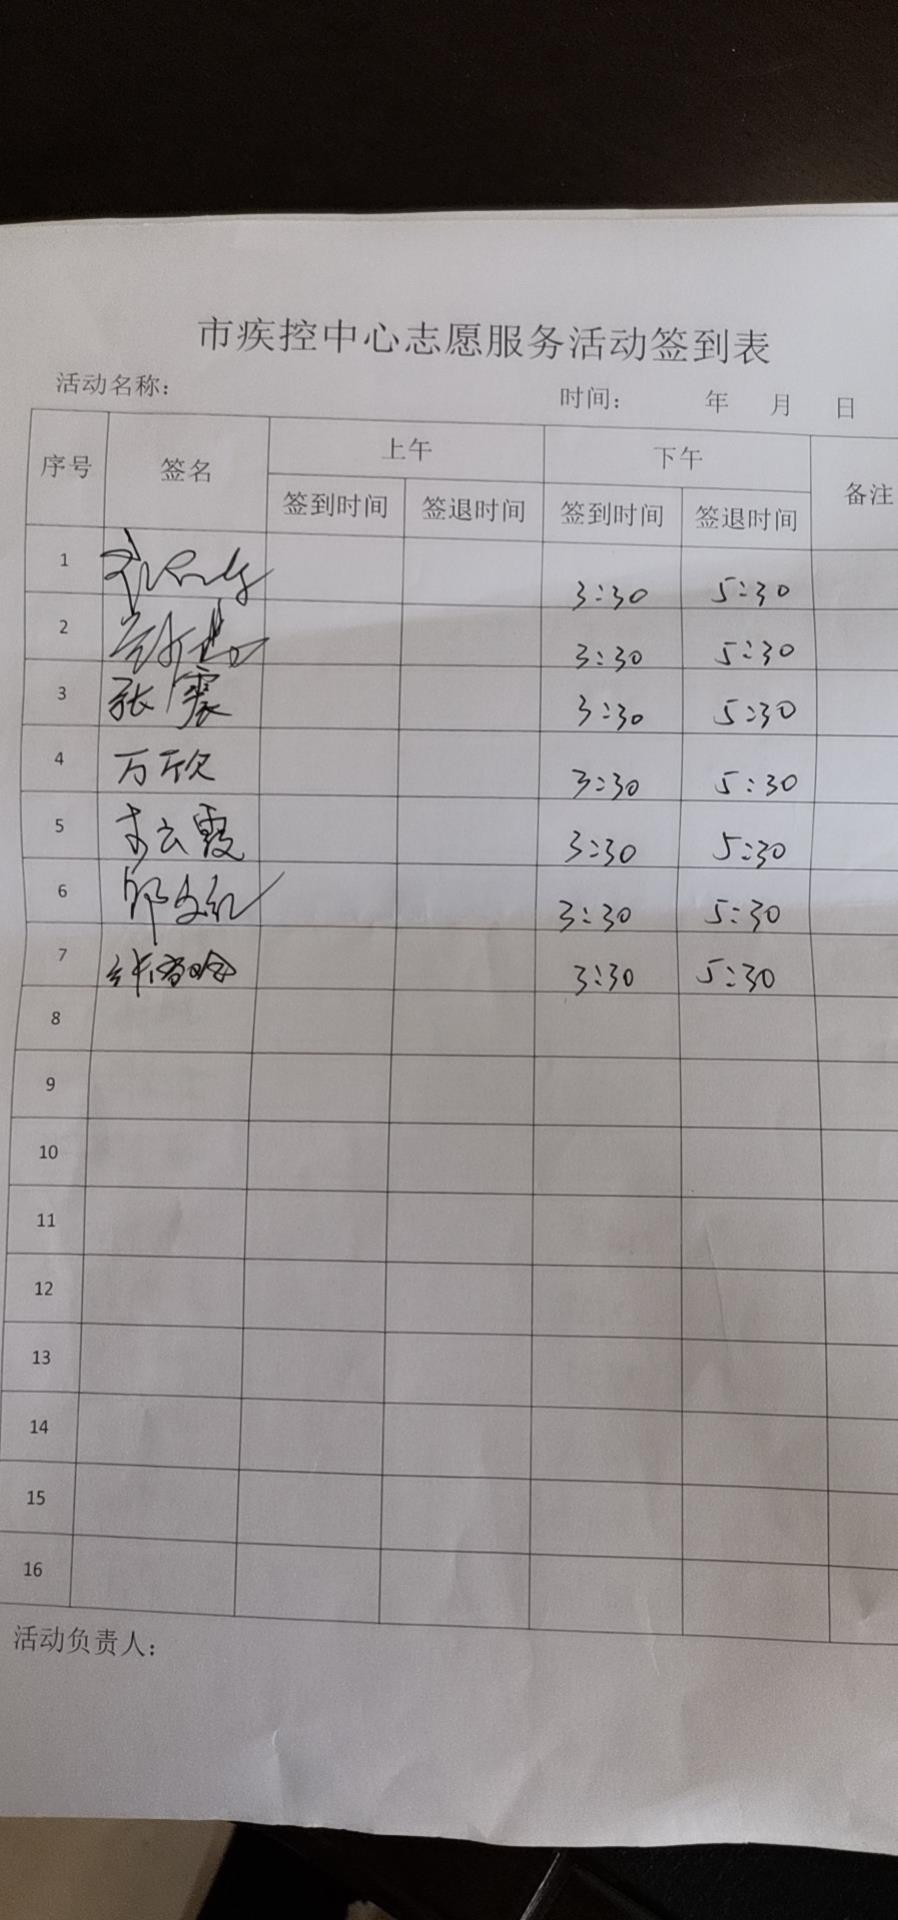 市疾控中心志愿服务活动签到表
活动名称： 时间： 年 月 日
序号 签名 上午 下午 备注
签到时间 签退时间 签到时间 签退时间
1 3:30 5:30
2 3:30 5:30
3 张震 3:30 5:30
4 万欣 3:30 5:30
5 李云霞 3:30 5:30
6 邹文红 3:30 5:30
7 3:30 5:30
8
9
10
11
12
13
14
15
16
活动负责人：